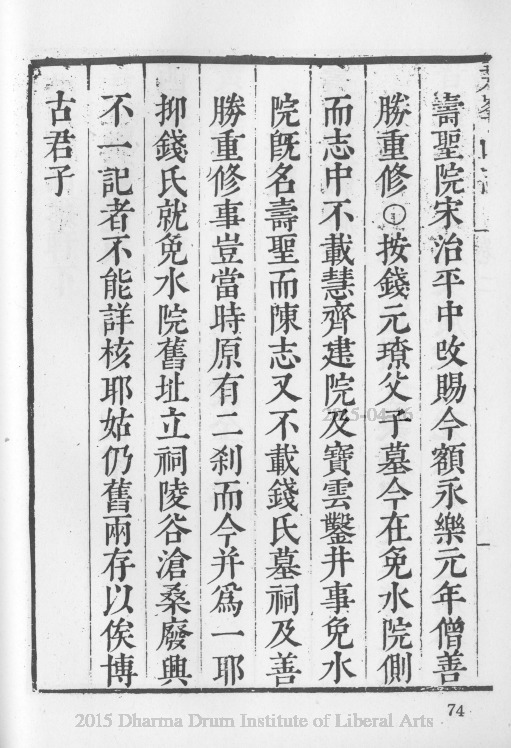 壽聖院宋治平中改賜今額永樂元年僧善
勝重修○按錢元璙父子墓今在免水院側
而志中不載慧齊建院及寶雲鑿井事免水
院既名壽聖而陳志又不載錢氏墓祠及善
勝重修事豈當時原有二刹而今并爲一耶
抑錢氏就免水院舊址立祠陵谷滄桑廢興
不一記者不能詳核耶姑仍舊兩存以俟博
古君子
74
2015-04-16
2015 Dharma Drum Institute of Liberal Arts